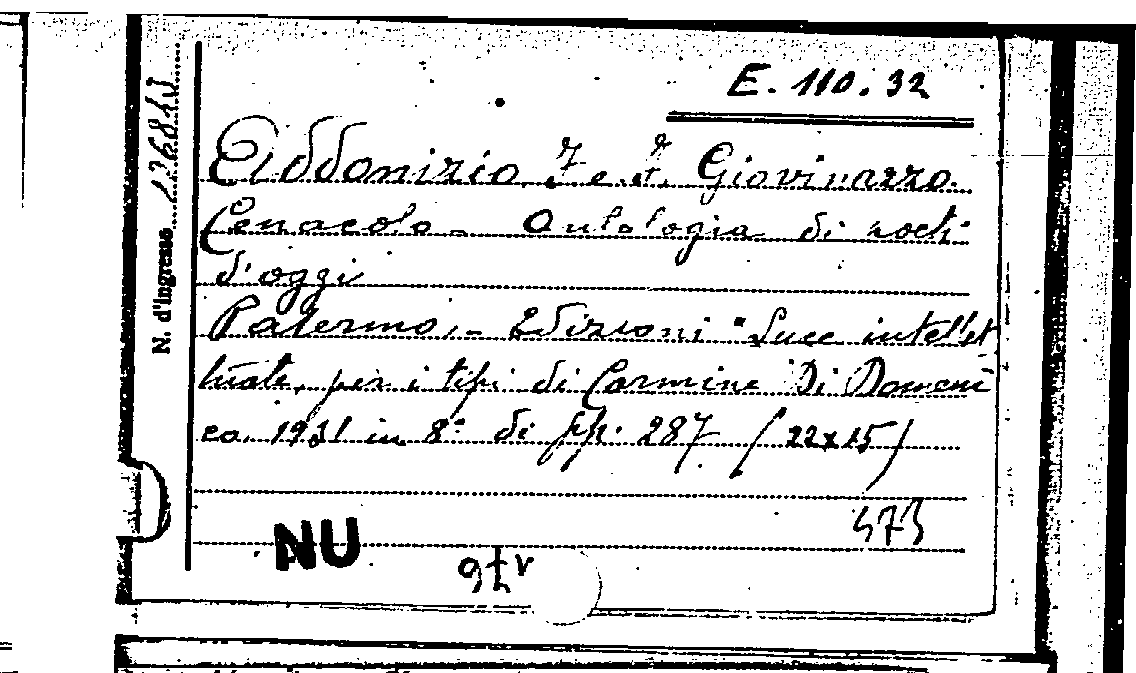 E. 110. 32
N. d'Ingresso
Addonizio F e. F. Giovinazzo.
Cenacolo - Antologia di poeti
d'oggi
Palermo, - Edizioni "Luce intellet
tuale, per i tipi di Carmine Di Domeni
co. 1931 in 8° di pp. 287 (22x15)
573
NU